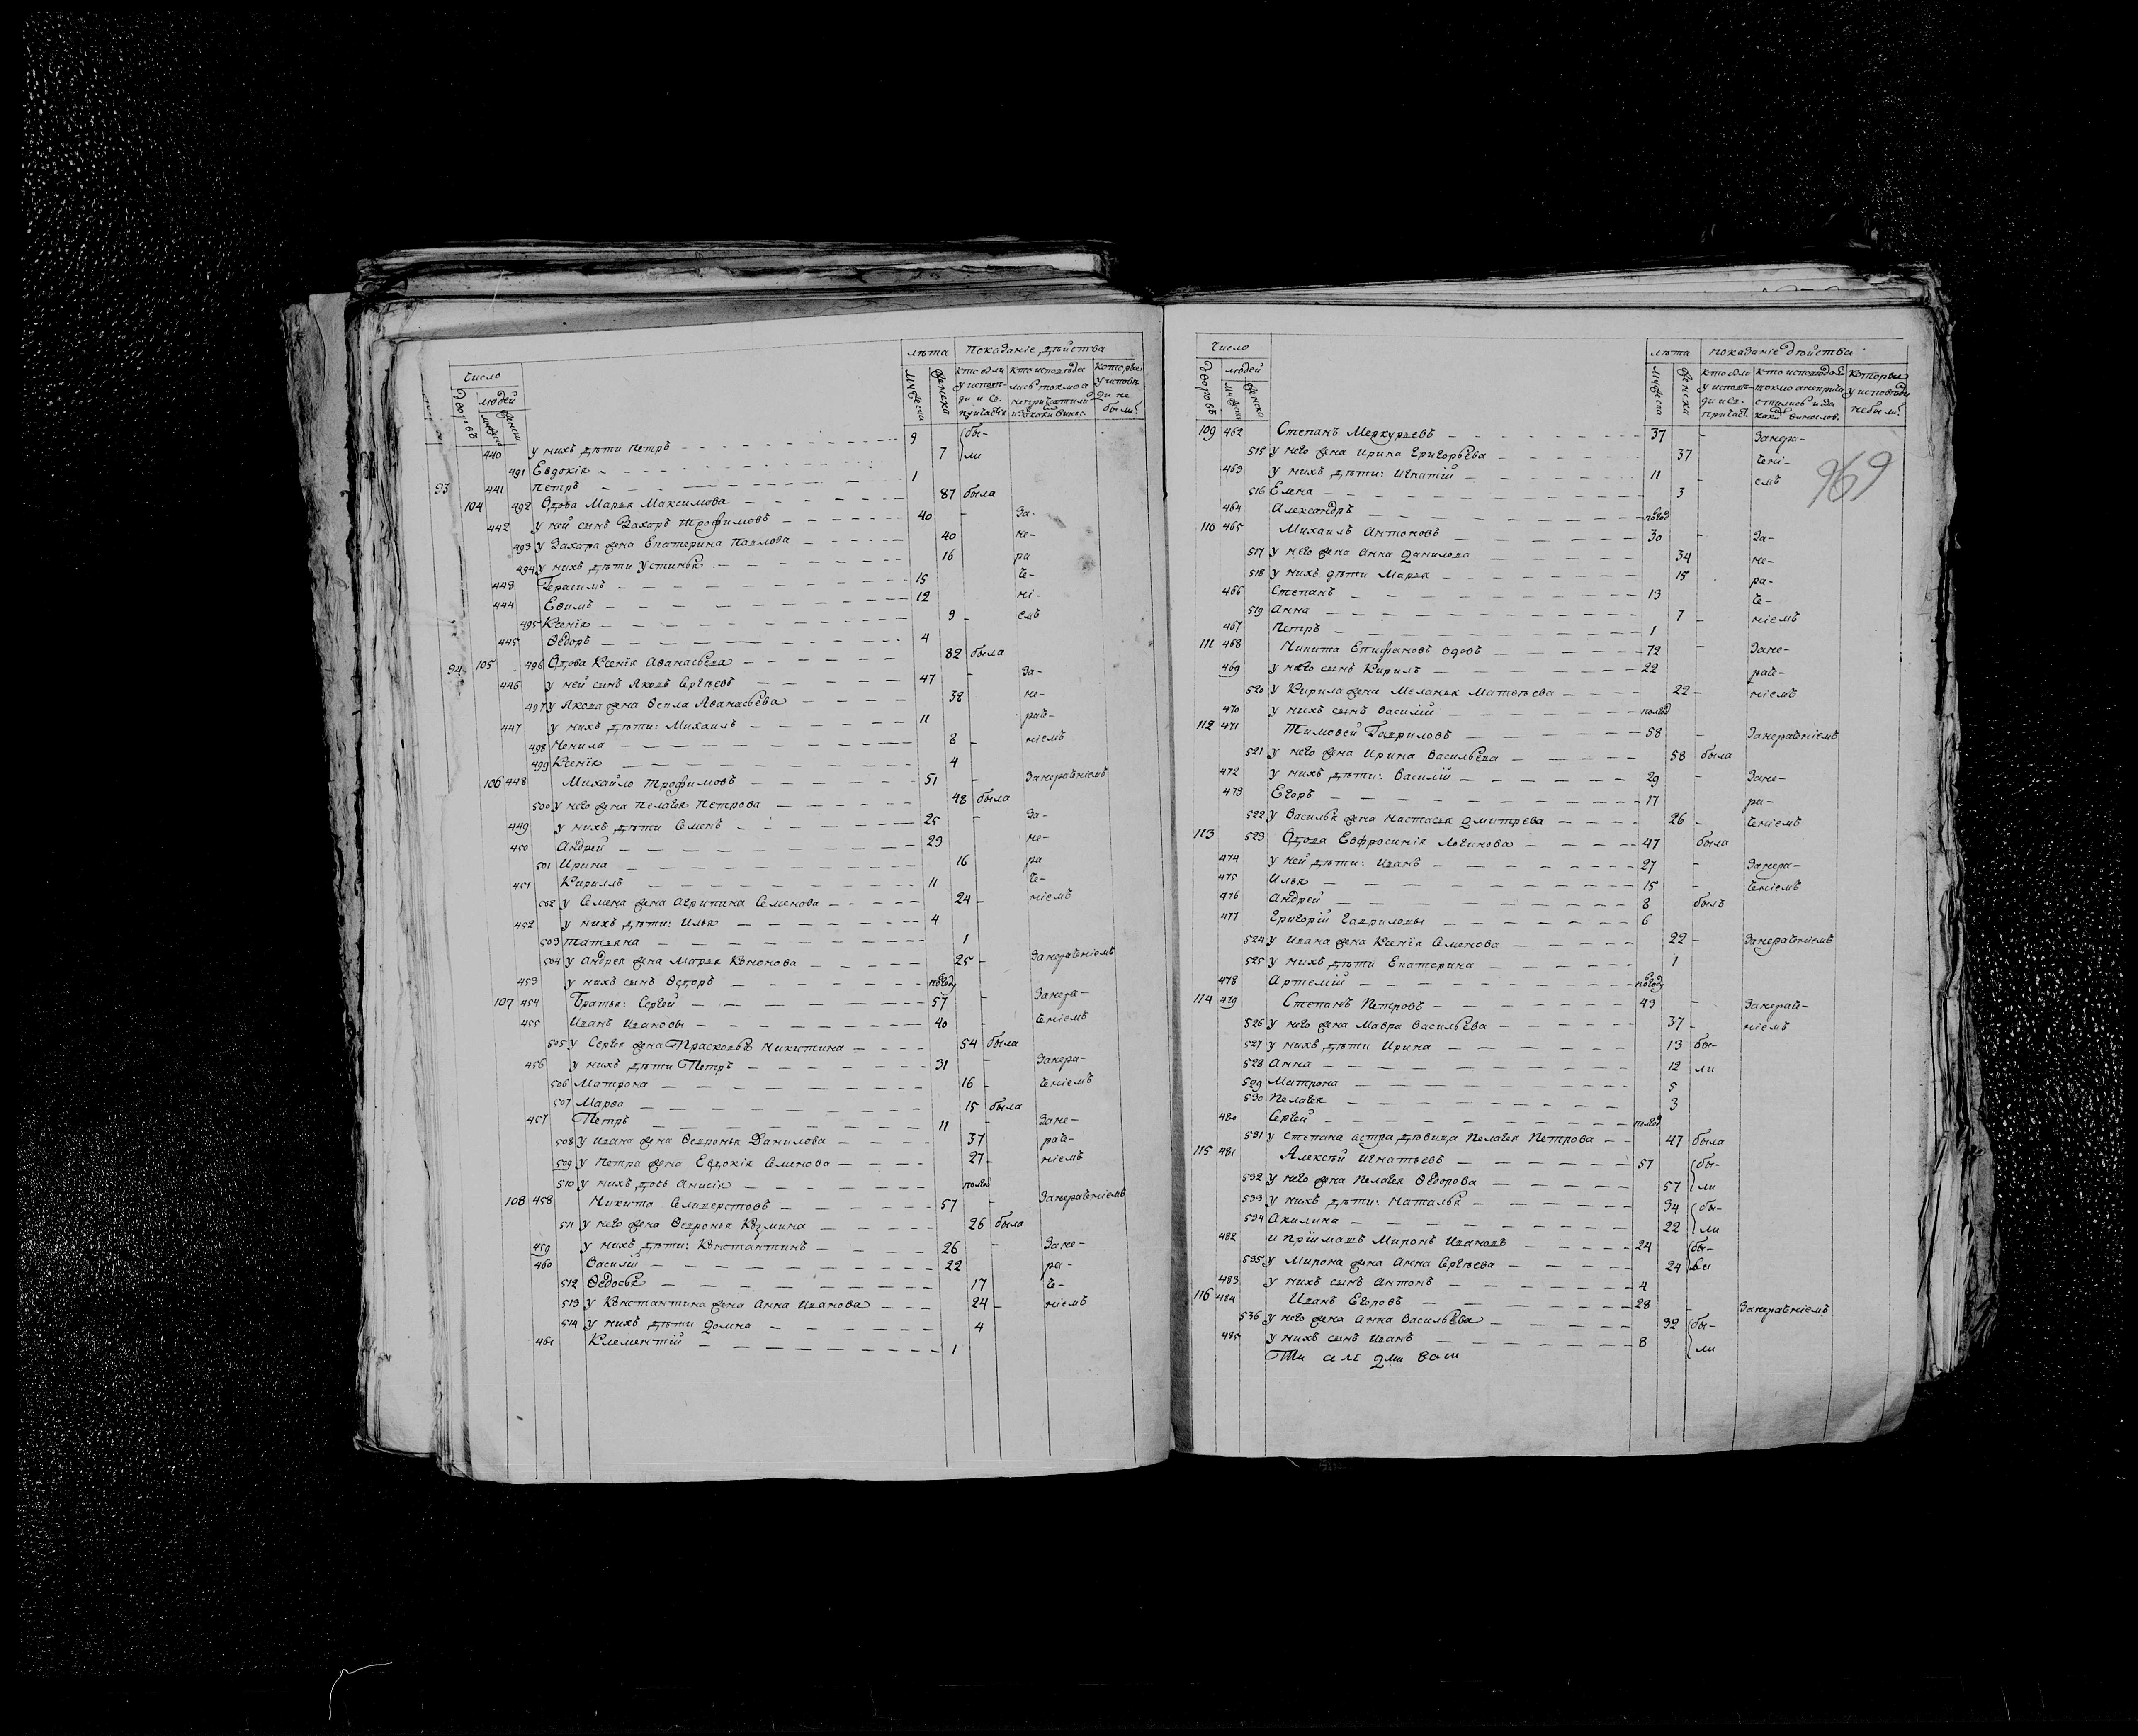 число
лѣта показанiе дѣйства
дворовъ людей
мужеска женска
мужеска женска
440 у нихъ дѣти Петръ 9 бы-
491 Евдокiя 7 ли
441 Петръ 1
93 104 492 вдова Марья Максимова 87 была
442 у ней сынъ Захаръ Трофимовъ 40 - за-
493 у Захара жена Екатерина Павлова 40 не-
494 у нихъ дѣти Устинья 16 ра
443 Герасимъ 15 че-
444 Ефимъ 12 нi-
495 Ксенiя 9 - емъ
445 Ѳедоръ 4
94 105 496 вдова Ксенiя Аѳанасьева 82 была
446 у ней сынъ Яковъ Сергѣевъ 47 - за-
497 у Якова жена Ѳекла Аѳанасьева 38 не-
447 у нихъ дѣти: Михаилъ 11 рач-
498 Ненила 8 - нiемъ
499 Ксенiя 4
106 448 Михайло Трофимовъ 51 - занераченiемъ
500 у него жена Пелагея Петрова 48 была
449 у нихъ дѣти Семенъ 25 - за-
450 Андрей 23 не-
501 Ирина 16 ра
451 Кириллъ 11 че-
502 у Семена жена Агрипина Семенова 24 - нiемъ
452 у нихъ дѣти: Илья 4
503 Татьяна 1
504 у Андрея жена Марья Кононова 25 - занераченiемъ
453 у нихъ сынъ Ѳедоръ полгод
107 454 Братья: Сергей 57 - занера-
455 Иванъ Ивановы 40 - ченiемъ
505 у Сергея жена Прасковья Никитина 54 была
456 у нихъ дѣти Петръ 31 занера-
506 Матрона 16 - ченiемъ
507 Марѳа 15 была
457 Петръ 11 - зане-
508 у Ивана жена Ѳевронья Данилова 37 рач-
509 у Петра жена Евдокiя Семенова 27 - нiемъ
510 у нихъ дочь Анисiя полгод
108 458 Никита Селиверстовъ 57 - занераченiемъ
511 у него жена Ѳевронья Кузмина 26 была
459 у нихъ дѣти: Константинъ 26 - зане-
460 Василiй 22 ра-
512 Ѳедосья 17 че-
513 у Константина жена Анна Иванова 24 - нiемъ
514 у нихъ дѣти Домна 4
461 Клементiй 1
число
лѣта показанiе дѣйства
дворовъ людей
мужеска женска
мужеска женска
109 462 Степанъ Меркурьевъ 37 - занера-
515 у него жена Ирина Григорьева 37 ченi-
463 у нихъ дѣти: Игнатiй 11 - емъ
969
516 Елена 3
464 Александръ полгод
110 465 Михаилъ Антоновъ 30 - за-
517 у него жена Анна Данилова 34 не-
518 у нихъ дѣти Марья 15 ра-
466 Степанъ 13 че-
519 Анна 7 - нiемъ
467 Петръ 1
111 468 Никита Епифановъ вдовъ 72 - зане-
469 у него сынъ Кирилъ 22 рач-
520 у Кирила жена Меланья Матвѣева 22 - нiемъ
470 у нихъ сынъ Василiй полгод
112 471 Тимоѳей Гавриловъ 58 - занераченiемъ
521 у него жена Ирина Васильева 58 была
472 у нихъ дѣти: Василiй 29 - зане-
473 Егоръ 17 ра-
522 у Василья жена Настасья Дмитрева 26 - ченiемъ
113 523 вдова Евфросинiя Логинова 47 была
474 у ней дѣти: Иванъ 27 - занера-
475 Илья 15 - ченiемъ
476 Андрей 8 былъ
477 Григорiй Гавриловы 6
524 у Ивана жена Ксенiя Семенова 22 - занераченiемъ
525 у нихъ дѣти Екатерина 1
478 Артемiй полгод
114 479 Степанъ Петровъ 43 - занерач-
526 у него жена Мавра Васильева 37 - нiемъ
527 у нихъ дѣти Ирина 13 бы-
528 Анна 12 ли
529 Матрона 5
530 Пелагея 3
480 Сергей полгод
531 у Степана сестра дѣвица Пелагея Петрова 47 была
115 481 Алексѣй Игнатьевъ 57 бы-
532 у него жена Пелагея Ѳедорова 57 ли
533 у нихъ дѣти: Наталья 34 бы-
534 Акилина 22 ли
482 и прiимашъ Миронъ Ивановъ 24 бы-
535 у Мирона жена Анна Сергѣева 24 ли
483 у нихъ сынъ Антонъ 4
116 484 Иванъ Егоровъ 28 - занераченiемъ
536 у него жена Анна Васильева 32 бы-
485 у нихъ сынъ Иванъ 8 ли